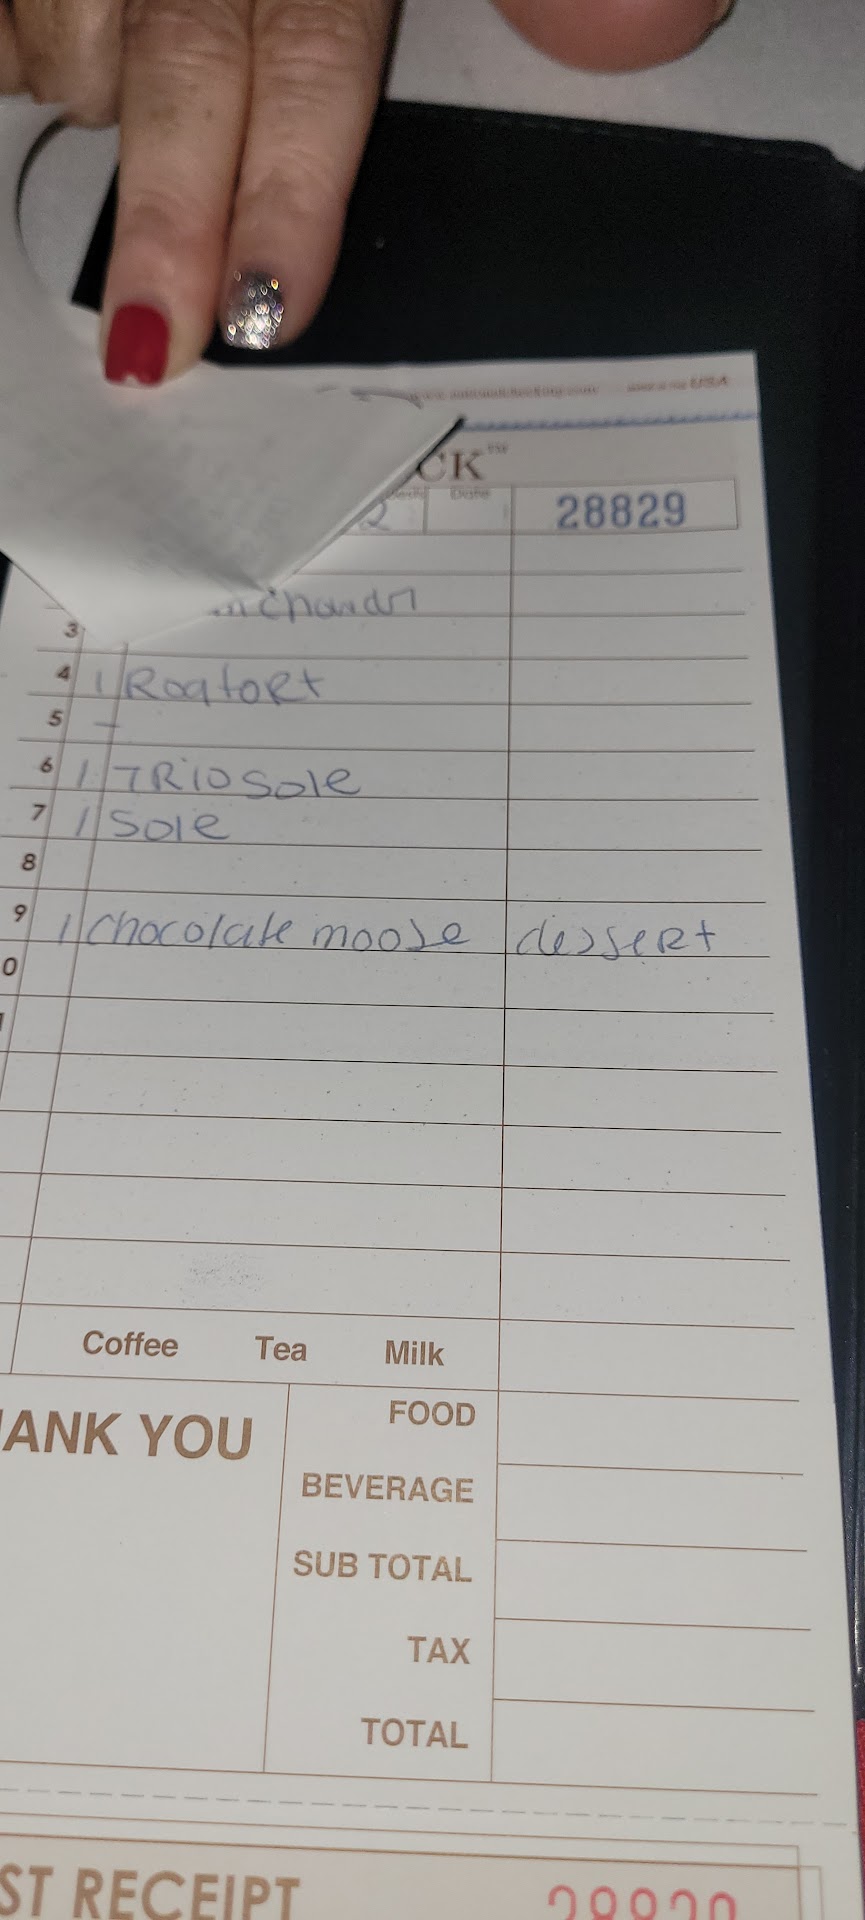 USA
CK™
Date
2
28829
chandn
3
4 1 Roqfort
5 -
6 1 TRIO Sole
7 1 Sole
8
9 1 Chocolate moose dessert
0
Coffee Tea Milk
FOOD
ANK YOU
BEVERAGE
SUB TOTAL
TAX
TOTAL
ST RECEIPT 28829